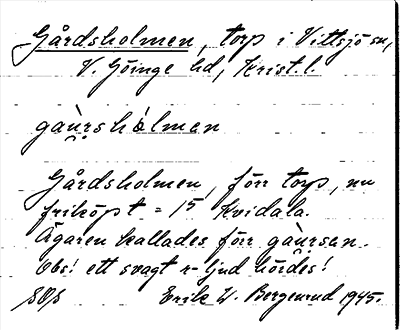 Gårdsholmen, torp i Vittsjö sn,
V. Göinge hd, Krist. l.
gàu̯rshòlmən
Gårdsholmen, förr torp, nu
friköpt = 15 Kvidala.
Ägaren kallades förr gàu̯rsən.
Obs! ett svagt r-ljud hördes!
Erik W. Bergenrud 1945.